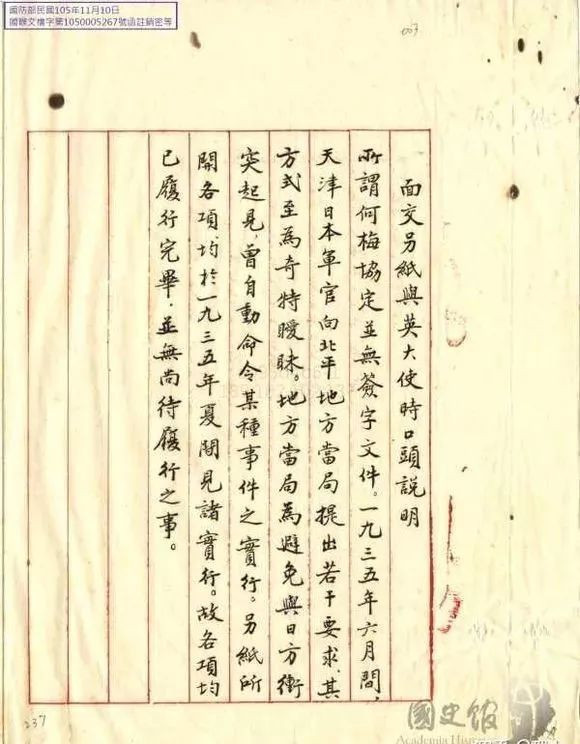 國防部民國105年11月10日
國辦文檔字第1050005267號函註銷密等
003
面交另紙與英大使時口頭說明
所謂何梅協定並無簽字文件。一九三五年六月間，
天津日本軍官向北平地方當局提出若干要求，其
方式至為奇特曖昧。地方當局為避免與日方衝
突起見，曾自動命令某種事件之實行。另紙所
開各項，均於一九三五年夏間見諸實行。故各項均
已履行完畢，並無尚待履行之事。
237
國史館
Academia Histo